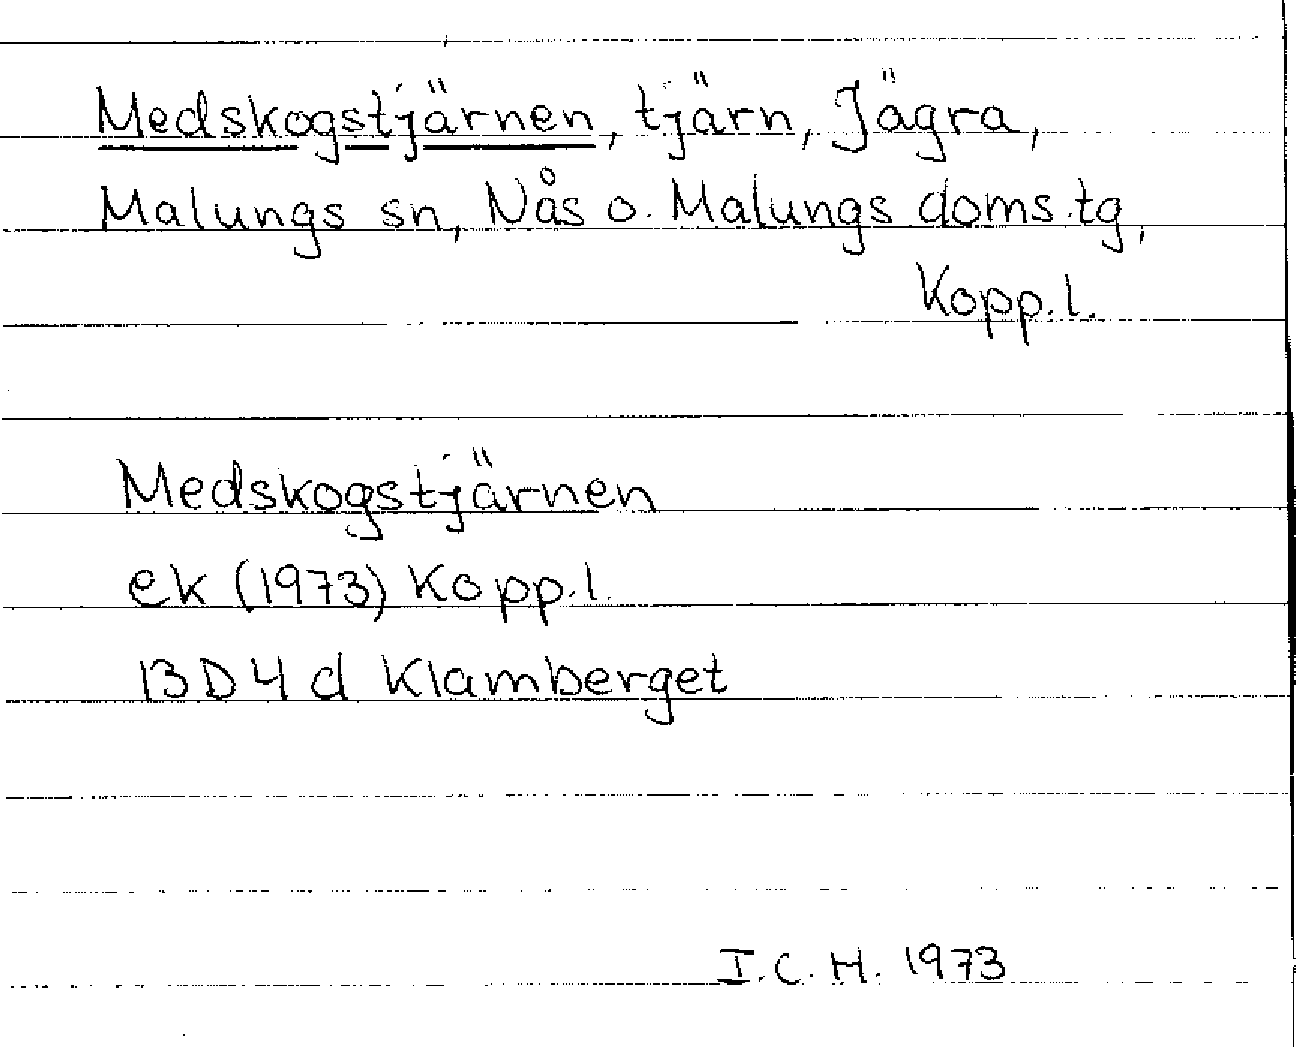 Medskogstjärnen, tjärn, Jägra,
Malungs sn, Nås o. Malungs doms.tg,
Kopp.l.
Medskogstjärnen
ek (1973) Kopp.l.
13D4d Klamberget
I.C.H. 1973